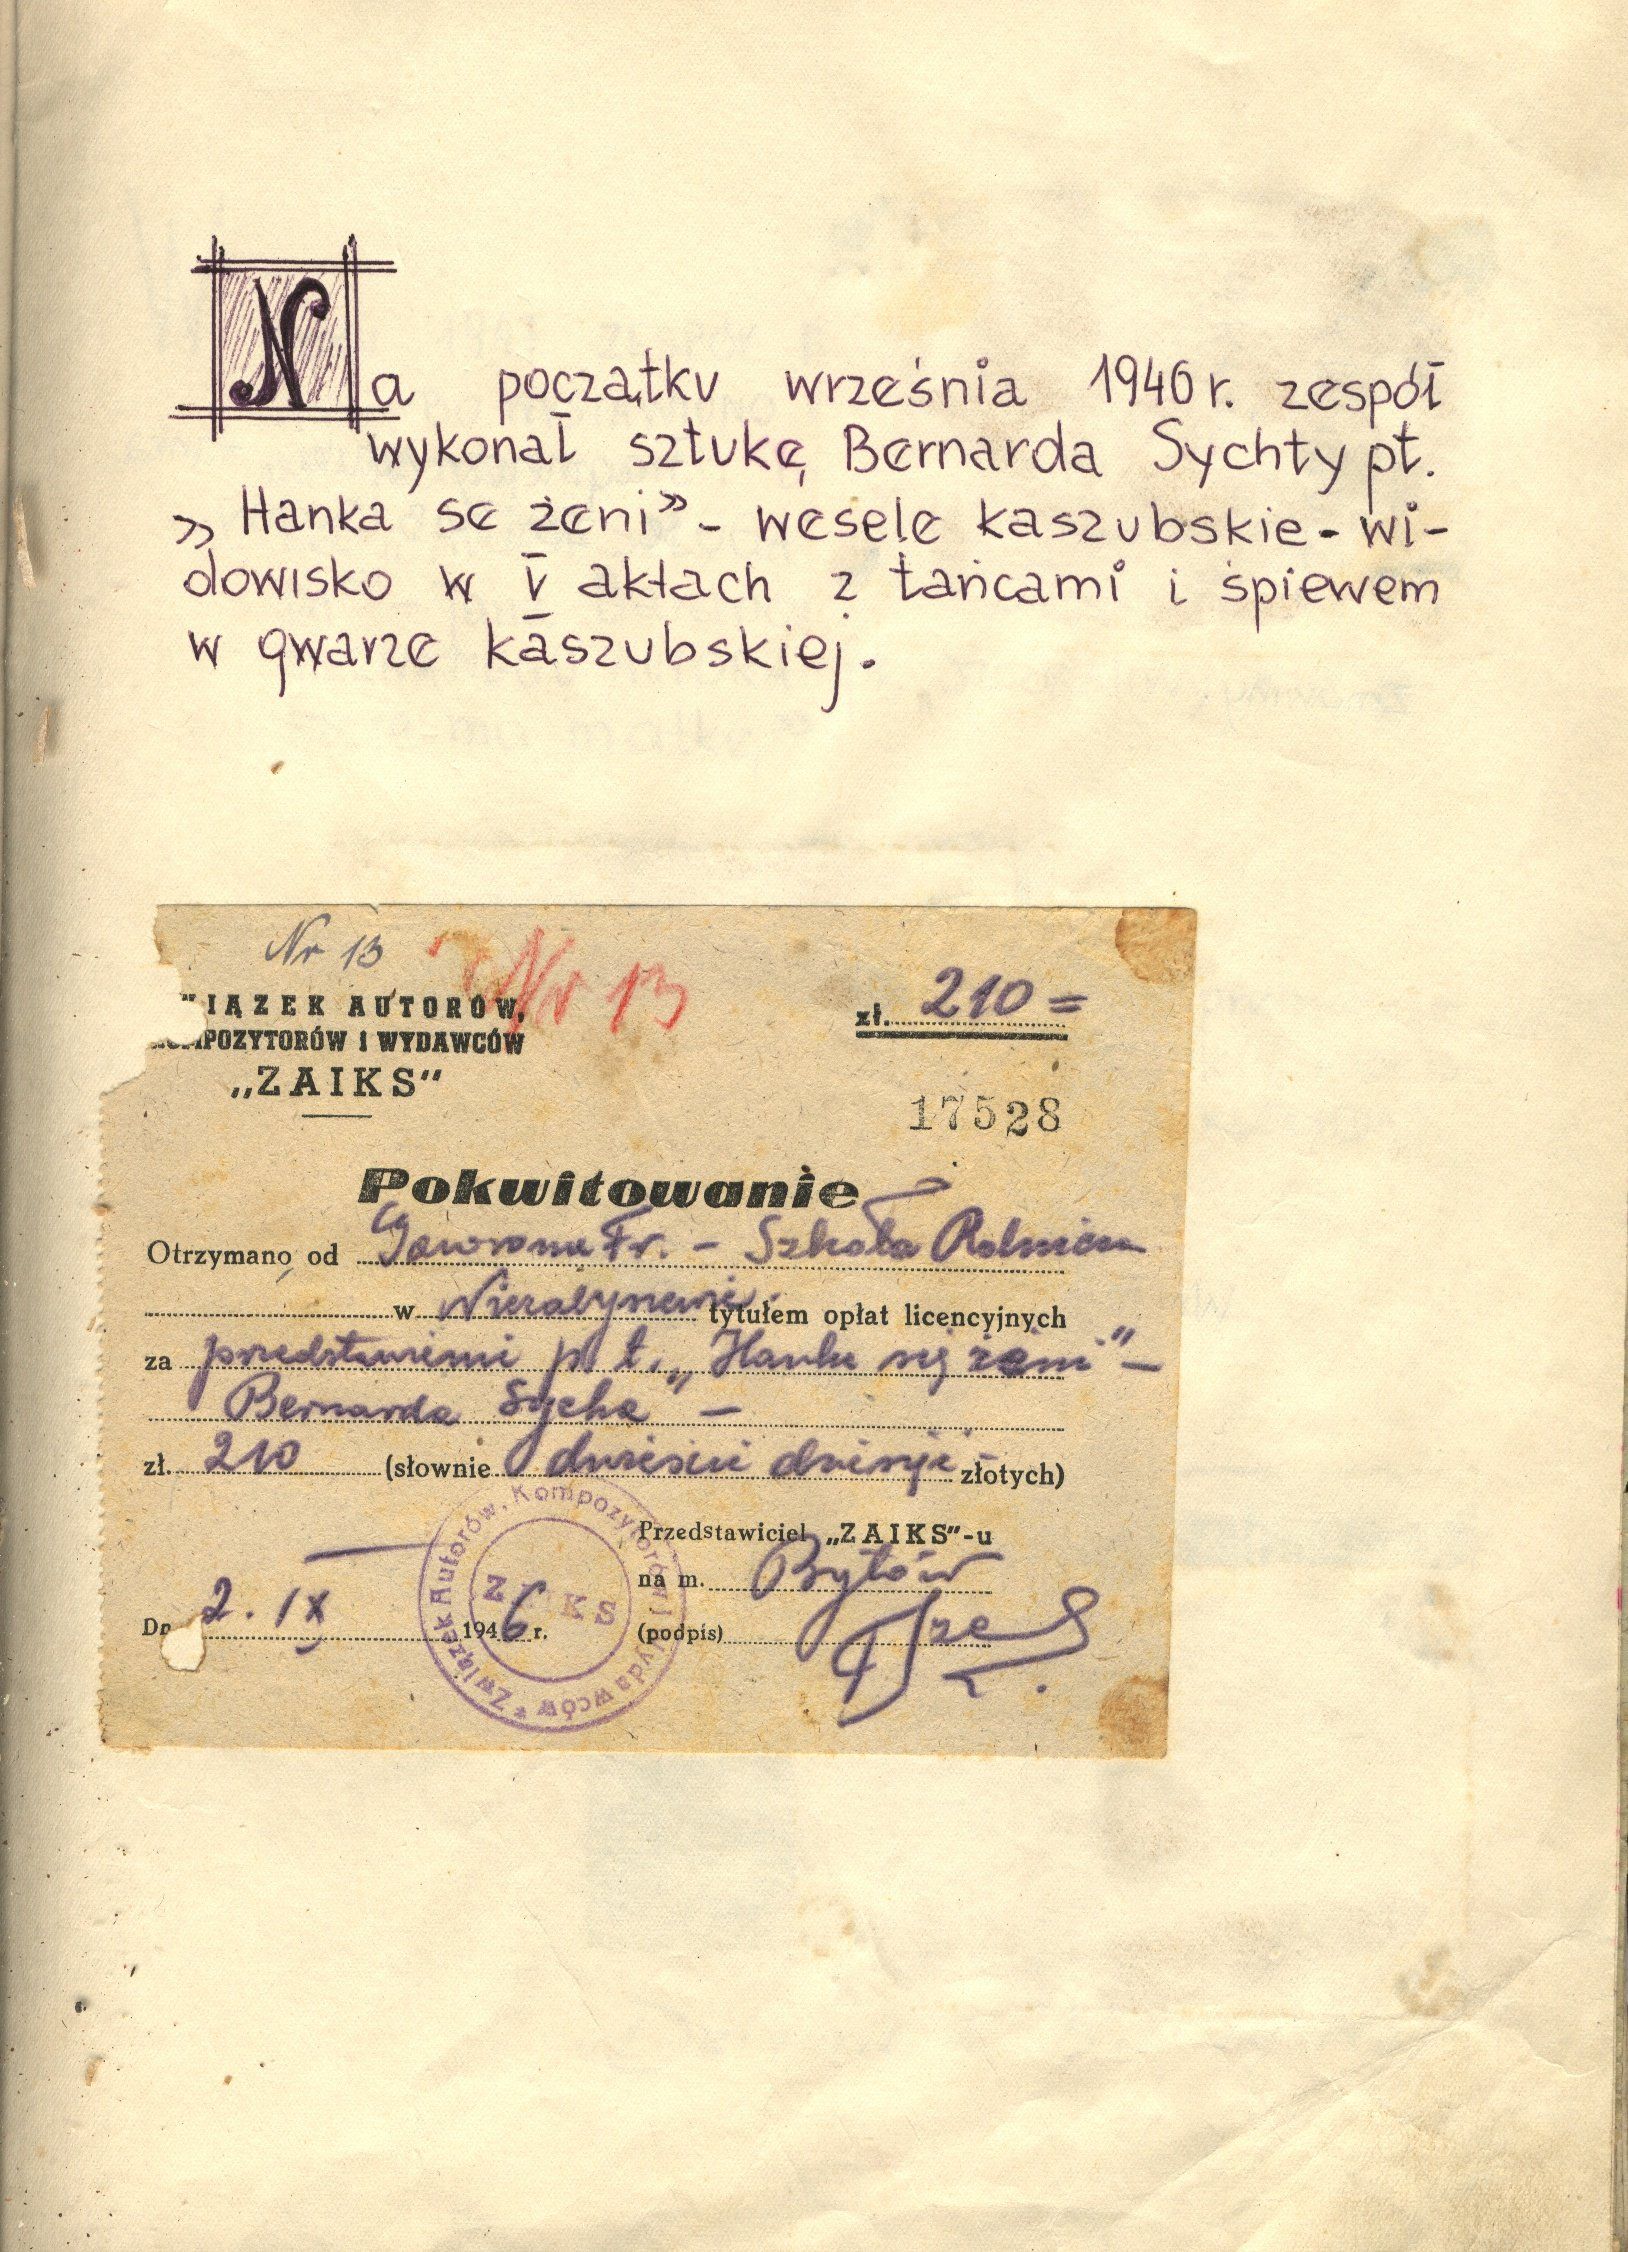 Na początku września 1946 r. zespół
wykonał sztukę Bernarda Sychty pt.
„Hanka se żeni” - wesele kaszubskie - wi-
dowisko w V aktach z tańcami i śpiewem
w gwarze kaszubskiej.
Nr 13
Nr 13
IĄZEK AUTORÓW,
POZYTORÓW I WYDAWCÓW
„ZAIKS”
zł. 210 =
17528
Pokwitowanie
Otrzymano od Fr. - Szkoła Rolnicza
w tytułem opłat licencyjnych
za przedstawienie p. t. „Hanka się żeni” -
Bernarda Sycha -
zł. 210 (słownie dwieście dziesięć złotych)
Przedstawiciel „ZAIKS”-u
na m. Bytów
Dn 2. IX 1946 r.
(podpis)
Związek Autorów, Kompozytorów i Wydawców * ZAIKS